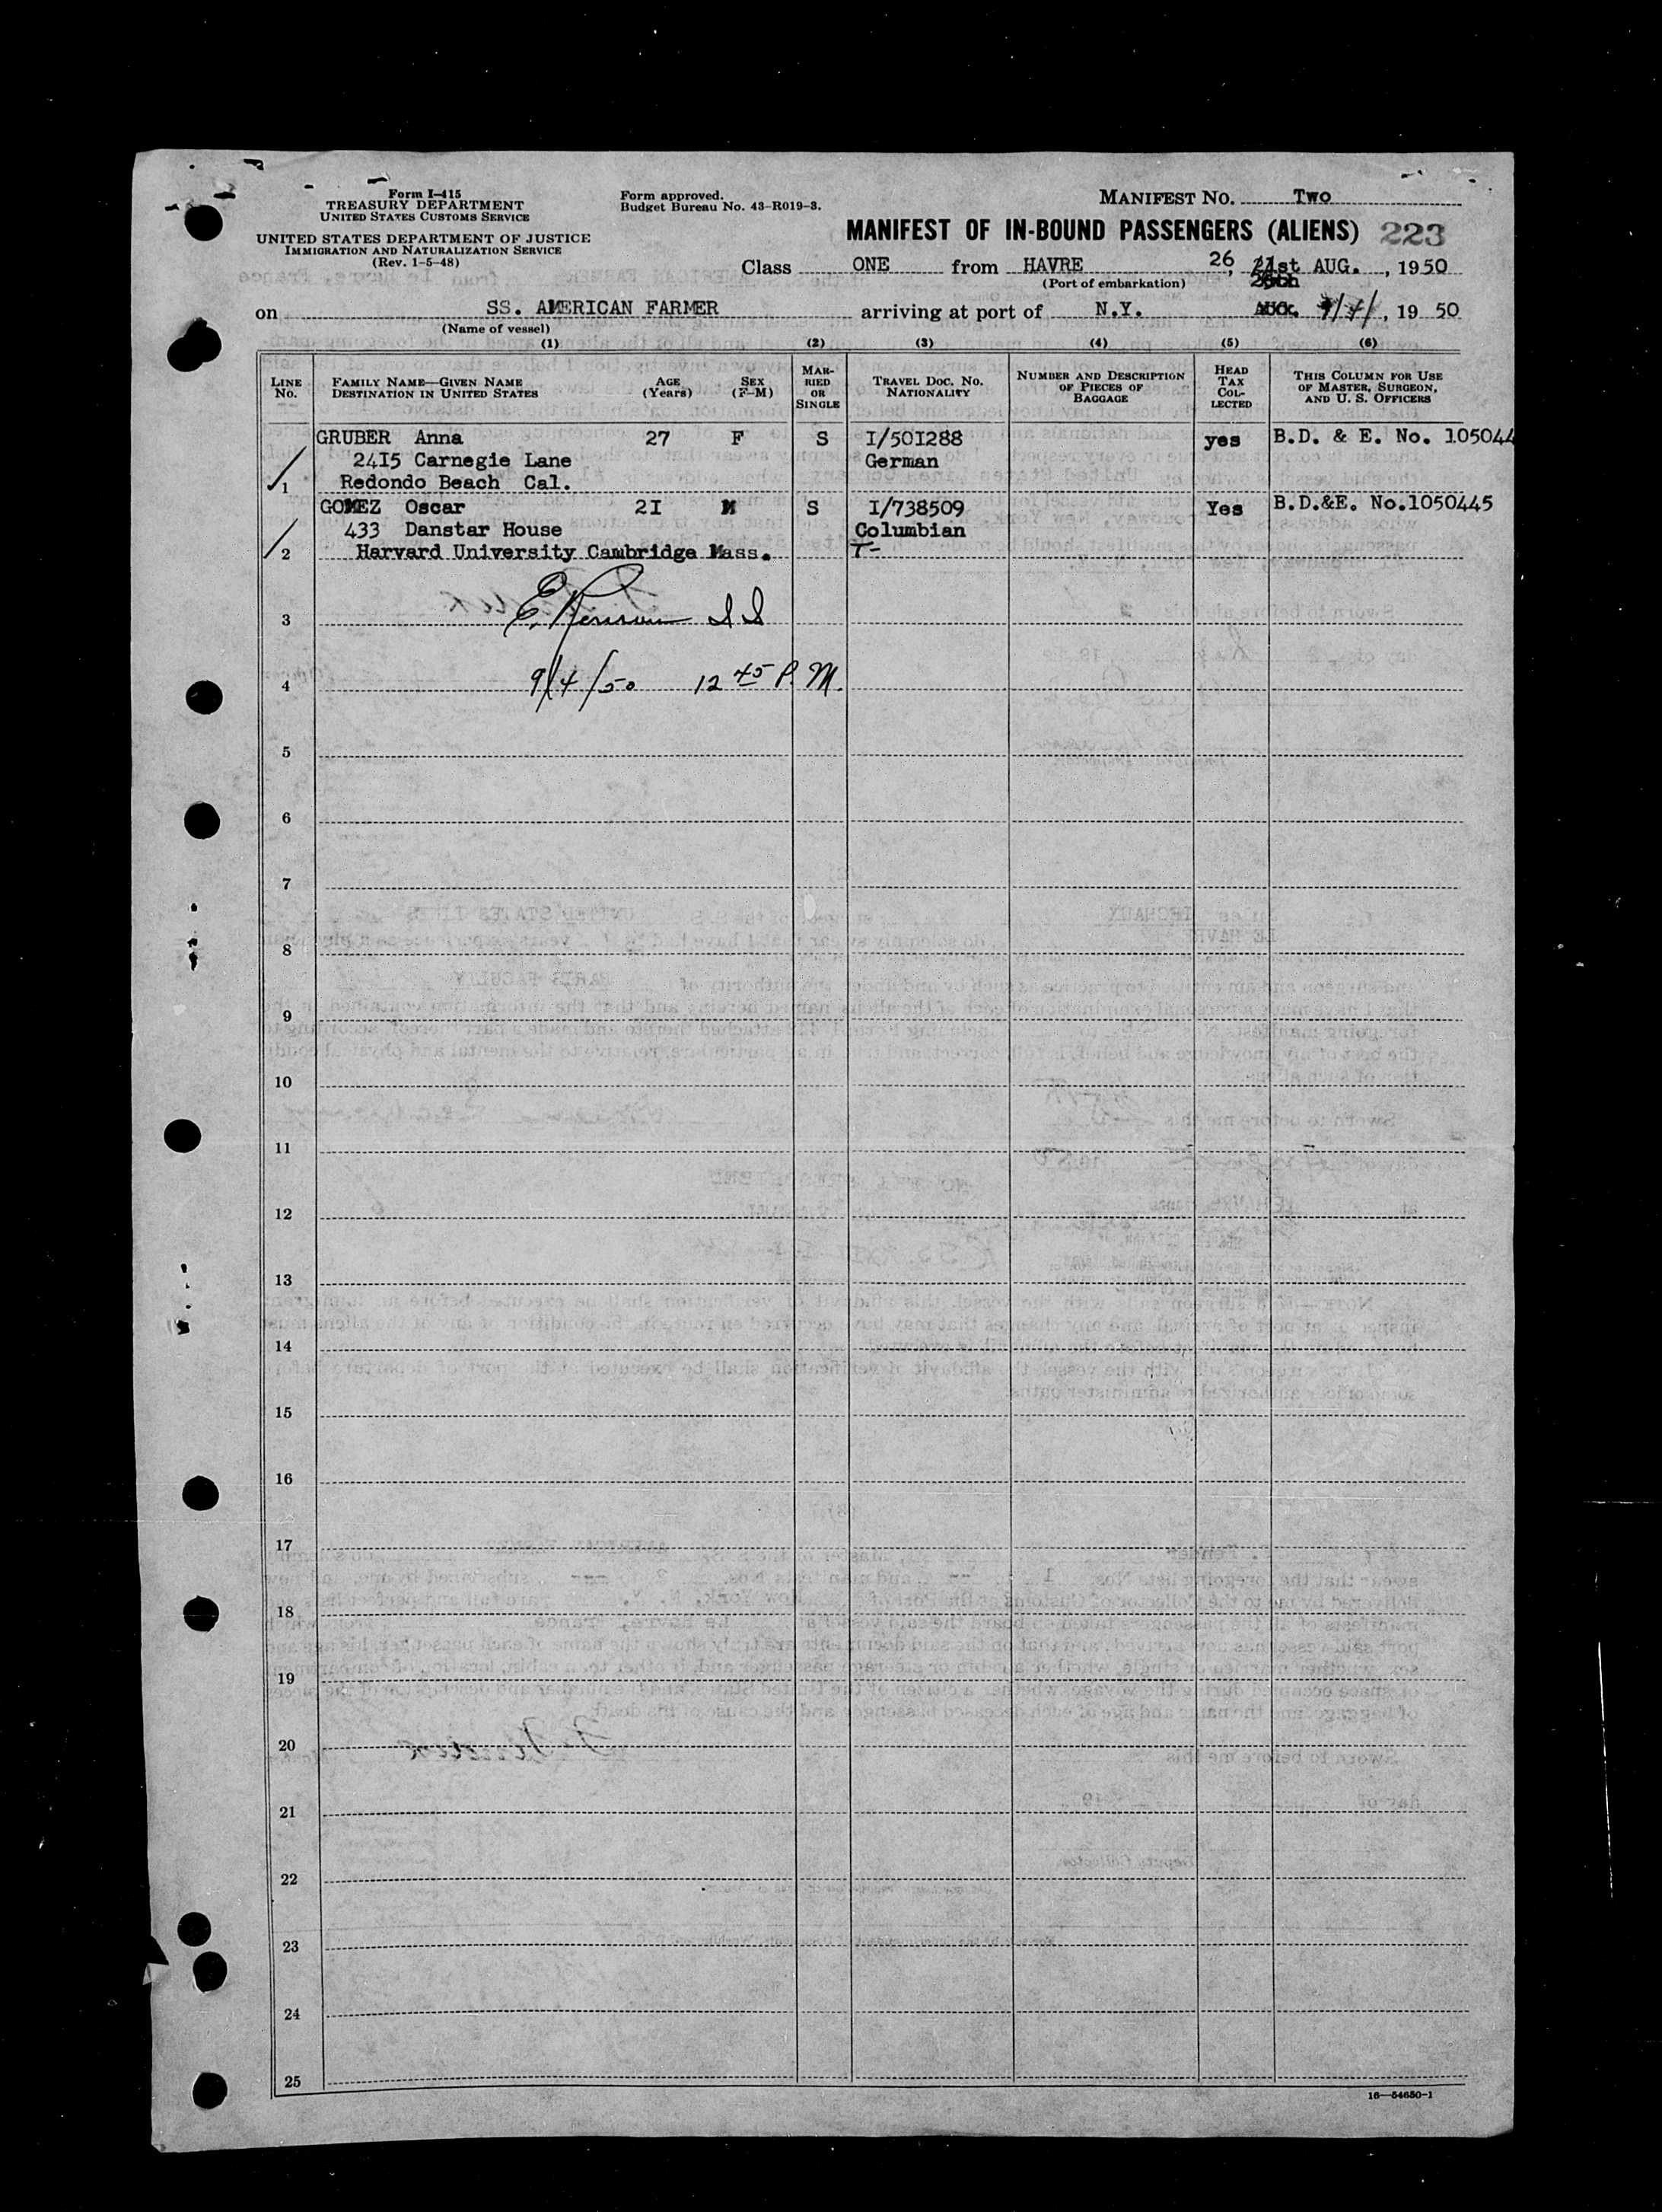 Form I-415
TREASURY DEPARTMENT
UNITED STATES CUSTOMS SERVICE
UNITED STATES DEPARTMENT OF JUSTICE
IMMIGRATION AND NATURALIZATION SERVICE
(Rev. 1-5-48)
Form approved.
Budget Bureau No. 43-R019-3.
MANIFEST NO. Two
MANIFEST OF IN-BOUND PASSENGERS (ALIENS) 223
Class ONE from HAVRE 26, 21st AUG., 1950
(Port of embarkation)
on SS. AMERICAN FARMER arriving at port of N.Y. 9/4/, 19 50
(Name of vessel)
(1) (2) (3) (4) (5) (6)
LINE No. FAMILY NAME—GIVEN NAME DESTINATION IN UNITED STATES AGE (Years) SEX (F-M) MARRIED OR SINGLE TRAVEL DOC. NO. NATIONALITY NUMBER AND DESCRIPTION OF PIECES OF BAGGAGE HEAD TAX COLLECTED THIS COLUMN FOR USE OF MASTER, SURGEON, AND U. S. OFFICERS
GRUBER Anna 27 F S I/50I288 yes B.D. & E. No. 105044
24I5 Carnegie Lane German
1 Redondo Beach Cal.
GOMEZ Oscar 2I M S I/738509 Yes B.D.&E. No.1050445
433 Danstar House Columbian
2 Harvard University Cambridge Mass. T-
3
4 9/4/50 12 45 P.M.
5
6
7
8
9
10
11
12
13
14
15
16
17
18
19
20
21
22
23
24
25
16—54650-1